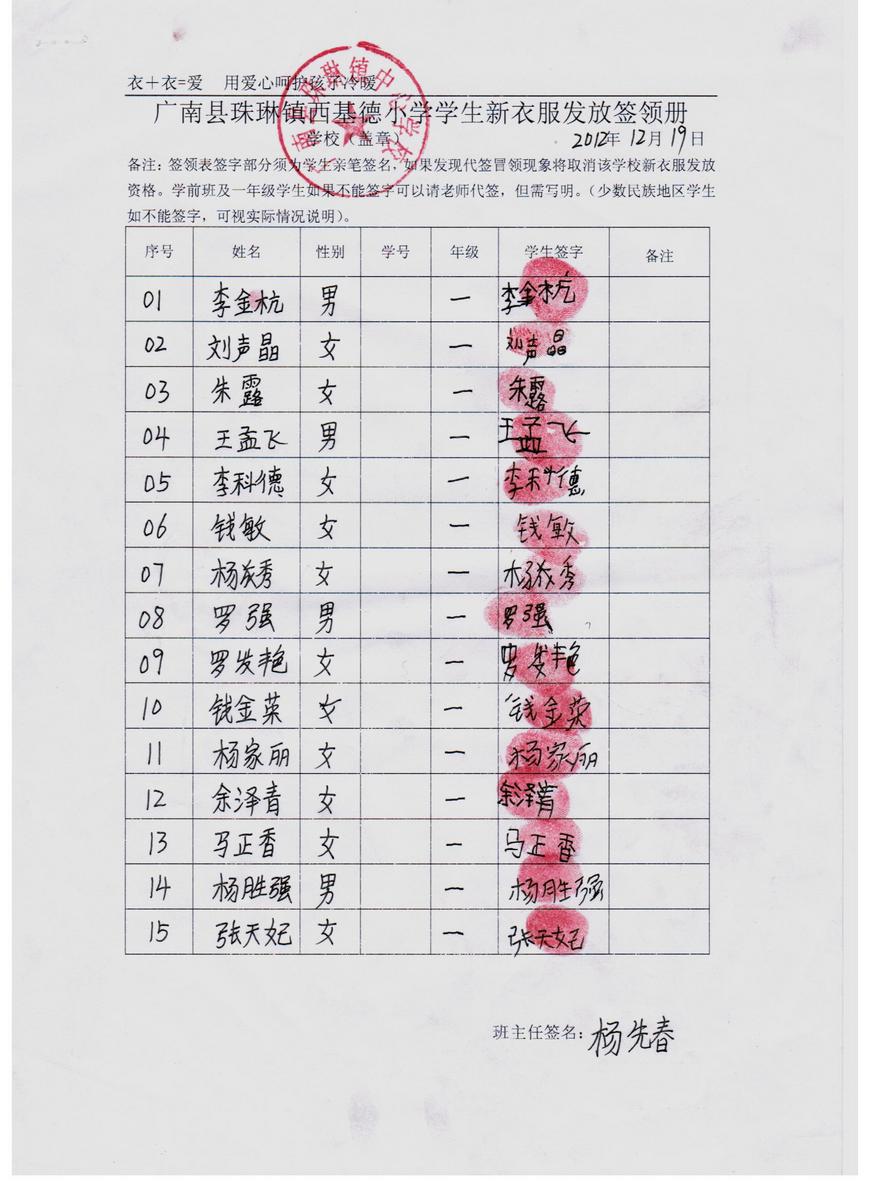 衣＋衣=爱 用爱心呵护孩子冷暖
广南县珠琳镇西基德小学学生新衣服发放签领册
广南县珠琳镇中心学校
学校（盖章） 2012年12月19日
备注：签领表签字部分须为学生亲笔签名，如果发现代签冒领现象将取消该学校新衣服发放
资格。学前班及一年级学生如果不能签字可以请老师代签，但需写明。（少数民族地区学生
如不能签字，可视实际情况说明）。
序号 姓名 性别 学号 年级 学生签字 备注
01 李金杭 男 一 李金杭
02 刘声晶 女 一 刘声晶
03 朱露 女 一 朱露
04 王孟飞 男 一 王孟飞
05 李科德 女 一 李科德
06 钱敏 女 一 钱敏
07 杨成秀 女 一 杨成秀
08 罗强 男 一 罗强
09 罗发艳 女 一 罗发艳
10 钱金荣 女 一 钱金荣
11 杨家丽 女 一 杨家丽
12 余泽青 女 一 余泽青
13 马正香 女 一 马正香
14 杨胜强 男 一 杨胜强
15 张天妃 女 一 张天妃
班主任签名：杨先春